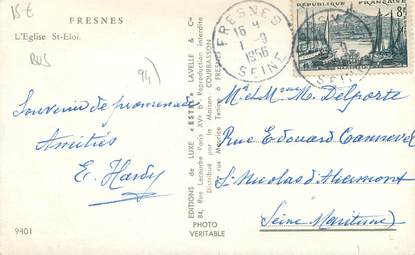 15 €
FRESNES
L'Eglise St-Eloi.
BUS
94)
Souvenir de promenade
Amitiés
E. Hardy
9401
EDITIONS de LUXE "ESTEL" LAVELLE & Cie
84, Rue Lecourbe Paris XVe Reproduction interdite
Distribué par la Maison COURBASSON
rue Maurice Ténine à FRESNES
PHOTO
VERITABLE
FRESNES
16 H
1 - 9
1956
SEINE
RÉPUBLIQUE FRANÇAISE
8f
Mr et Mme M. Delporte
Rue Edouard Cannevel
St Nicolas d'Aliermont
Seine Maritime